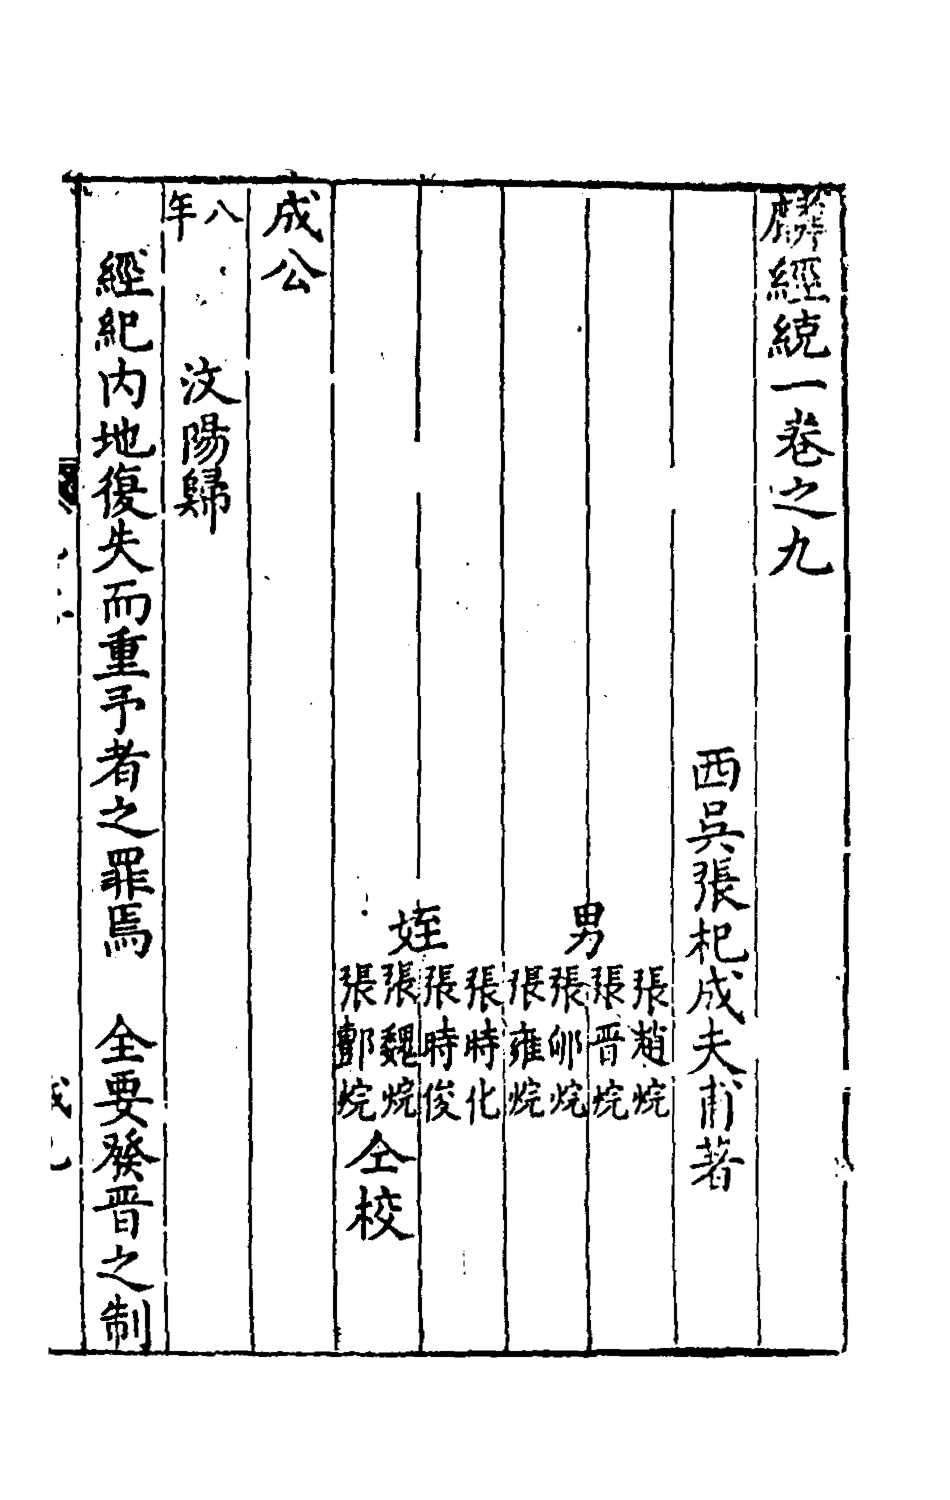 麟經統一卷之九
西吳張杞成夫甫著
男
張趙烷
張晋烷
張邺烷
張雍烷
姪
張時化
張時俊
張魏烷
張鄷烷
仝校
成公
八年
汶陽歸
經紀内地復失而重予者之罪焉 全要發晋之制